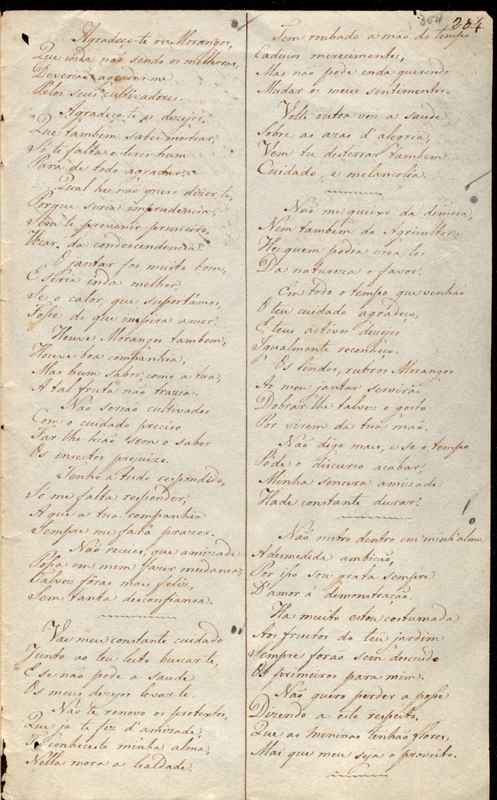 304
234
Agradeço-te os Morangos,
Que inda não sendo os melhores,
Deverão agradar-me
Pelos seus cultivadores.
Agradeço-te os dezejos,
Que tambem sabes mostrar,
Só te falta o teres hum
Para de todo agradar.
Qual he não quero dizer-te,
Porque seria imprudencia,
Sem te prevenir primeiro,
Uzar da condescendencia.
O jantar foi muito bom,
E seria inda melhor,
Se o calor, que suportámos,
Fosse do que inspira amor.
Houve Morangos tambem,
Houve boa companhia,
Mas hum sabor como a tua,
A tal fruta não trazia.
Não serião cultivados
Com o cuidado precizo
Far-lhe-hião sem o saber
Os insectos prejuizo.
Tenho a tudo respondido,
Só me falta responder,
A que a tua companhia
Sempre me fará prazer.
Não receies, que amizade
Possa em mim fazer mudança,
Talvez fôras mais feliz,
Sem tanta desconfiança.
Vai meu constante cuidado
Junto ao teu leito buscar-te,
E se não pode a saude
Os meus dezejos levar-te.
Não te renovo os protestos,
Que ja te fiz d'amizade;
Tu conheceste minha alma,
Nella mora a lealdade.
Tem roubado a mão do tempo
Caducos merecimentos,
Mas não pode, inda querendo
Mudar os meus sentimentos.
Volte outra vez a saude
Sobre as azas d'alegria,
Vem tu desterrar tambem
Cuidado, e melancolia.
Não me queixo da demora,
Nem tambem do Agricultor,
He quem podia
Da natureza o favor.
Em todo o tempo que venhão
O teu cuidado agradeço,
E teus activos dezejos
Igualmente reconheço.
Os lindos, rubros Morangos
Ao meu jantar servirão
Dobrar-lhe talvez o gosto
Por virem da tua mão.
Não digo mais, e se o tempo
Pode o discurso acabar,
Minha sincera amizade
Hade constante durar.
Não nutro dentro em minh'alma
A desmedida ambição,
Por isso sou grata sempre
D'amor á demonstração.
Ha muito estou costumada
Aos fructos do teu jardim
Sempre forão sem descuido
Os primeiros para mim.
Não quero perder a posse
Dizendo a este respeito,
Que as meninas tenhão flores,
Mas que meu seja o proveito.